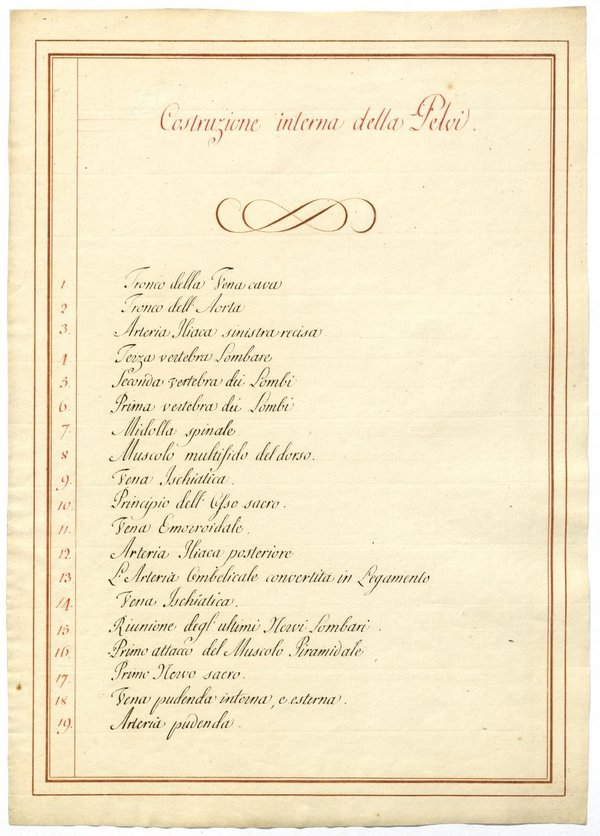 Costruzione interna della Pelvi.
1 Tronco della Vena cava
2 Tronco dell'Aorta
3. Arteria Iliaca sinistra recisa
4 Terza vertebra Lombare
5 Seconda vertebra dei Lombi
6. Prima vertebra dei Lombi
7 Midolla spinale
8 Muscolo multifido del dorso.
9. Vena Ischiatica.
10. Principio dell'Osso sacro.
11. Vena Emorroidale.
12. Arteria Iliaca posteriore
13 L'Arteria Ombelicale convertita in Legamento
14. Vena Ischiatica.
15 Riunione degl'ultimi Nervi Lombari.
16. Primo attacco del Muscolo Piramidale
17. Primo Nervo sacro.
18 Vena pudenda interna, e esterna.
19. Arteria pudenda.